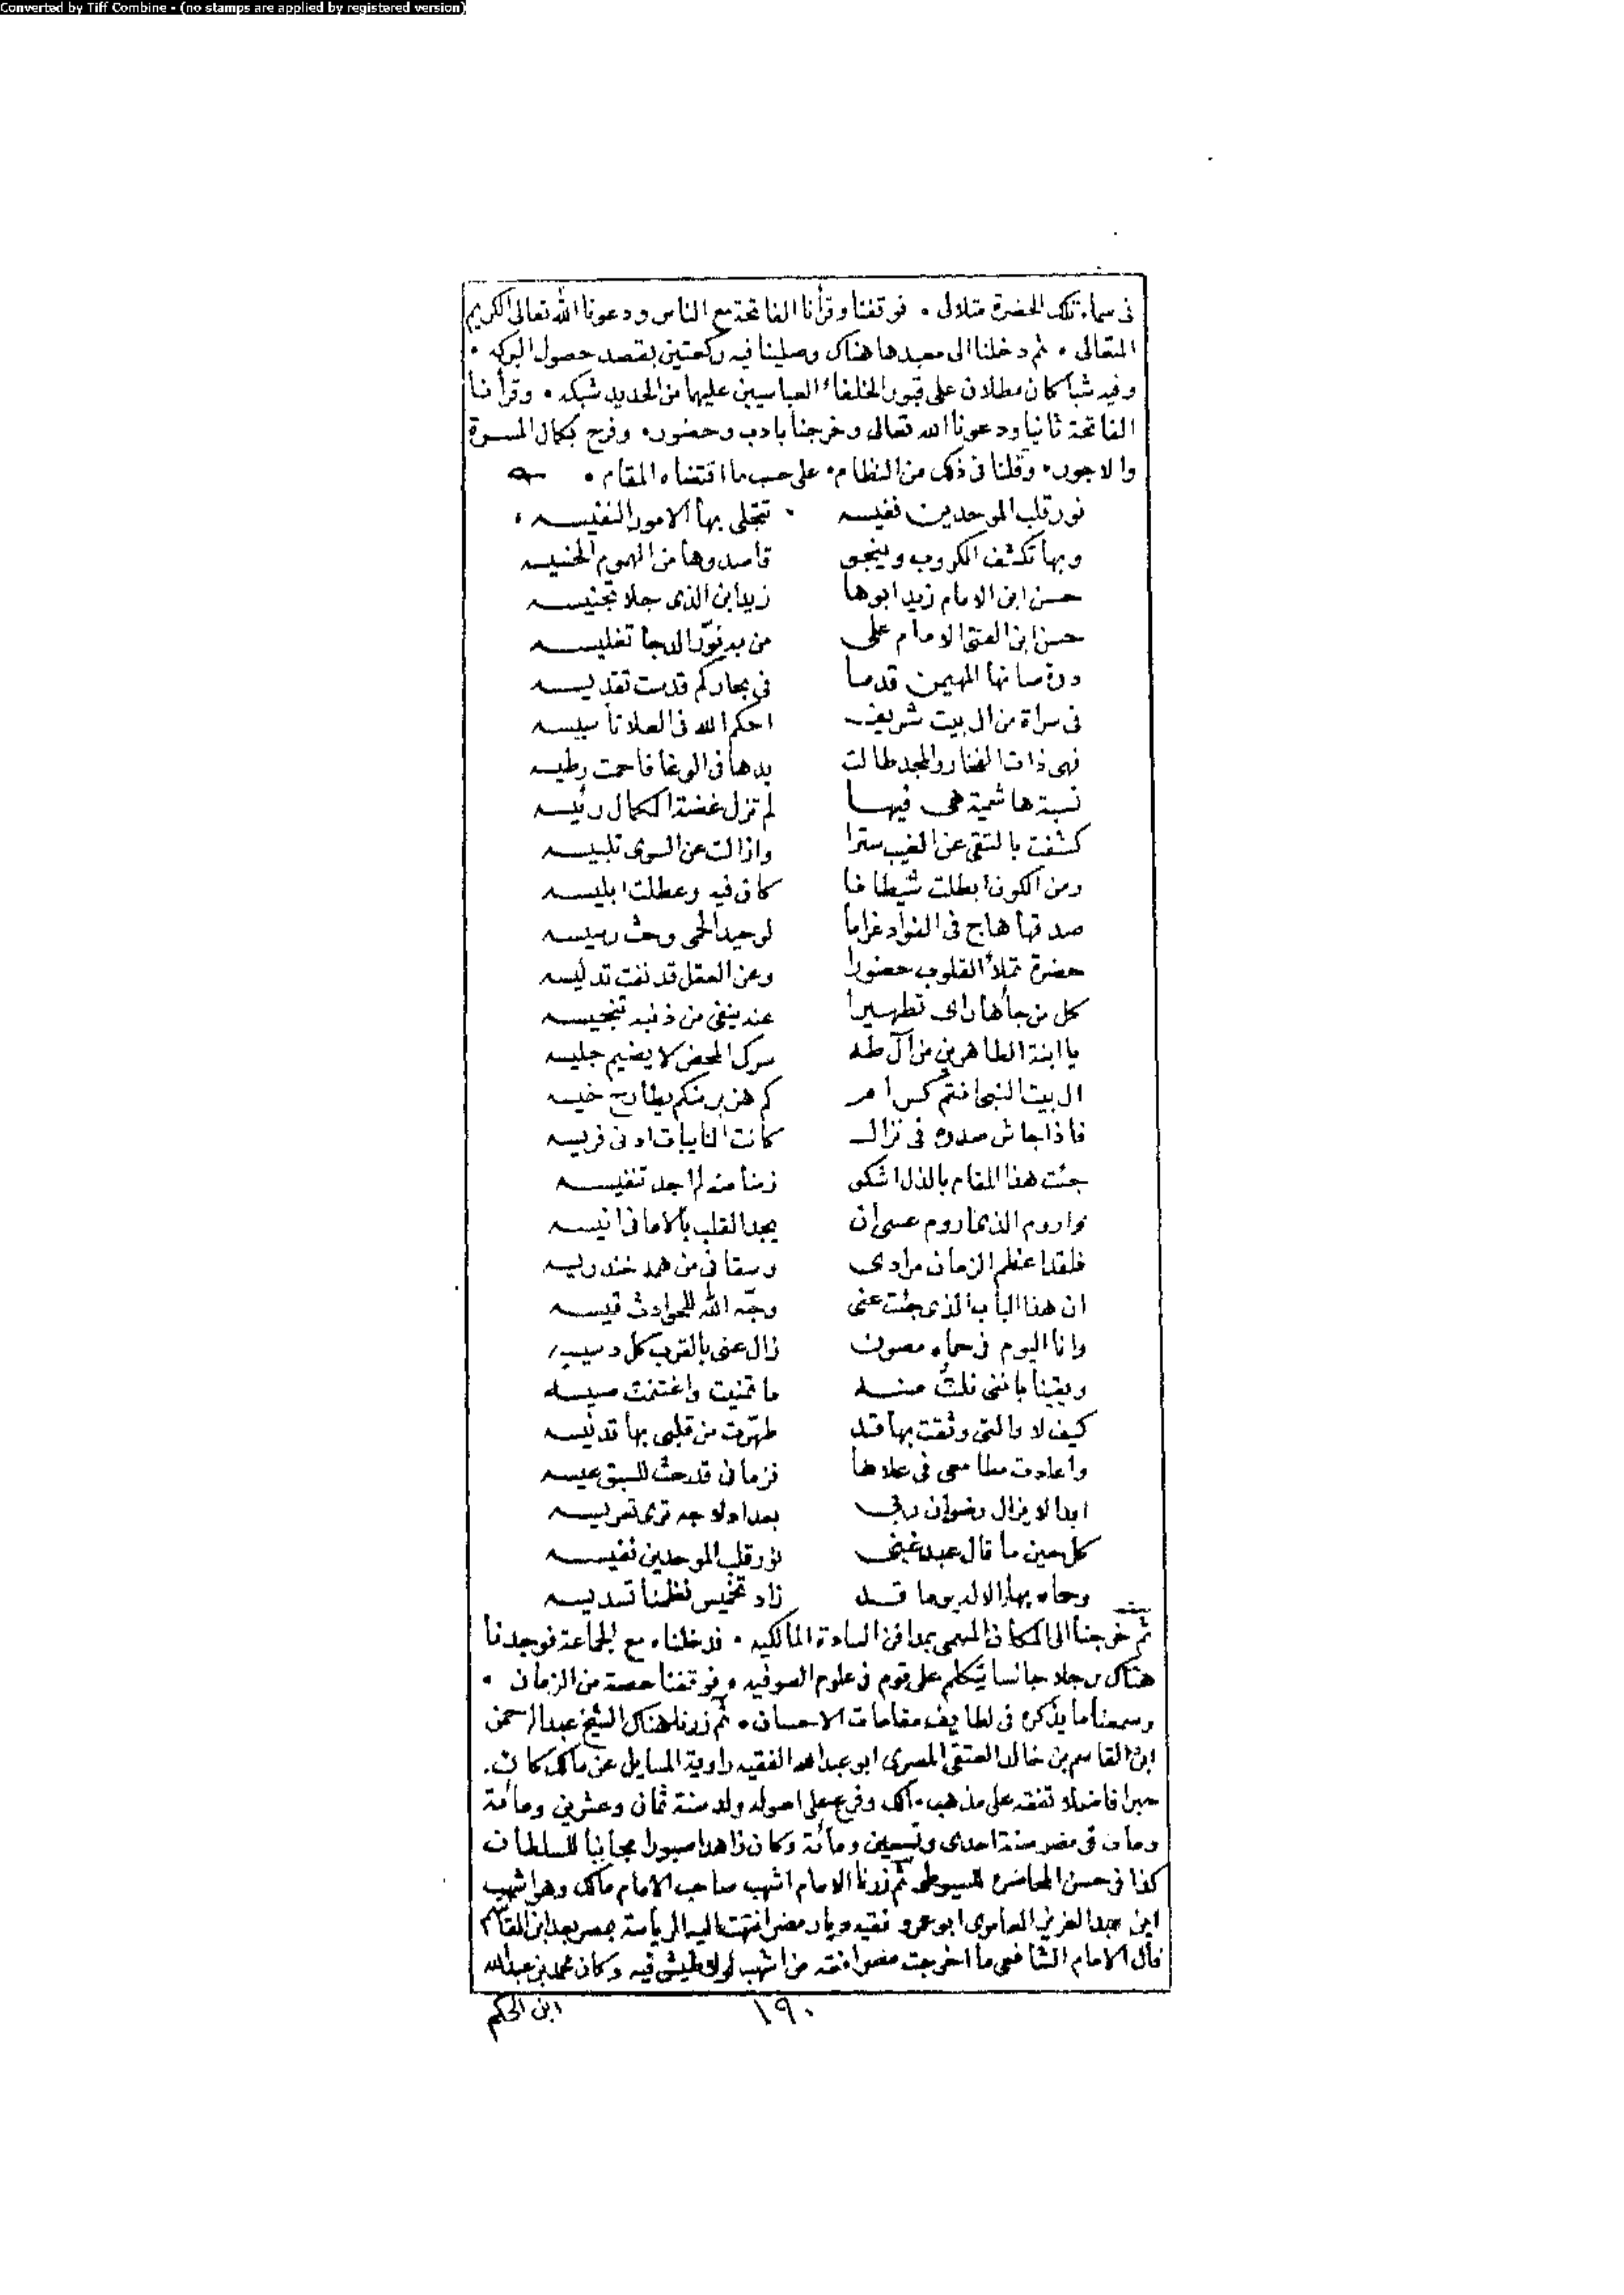 Converted by Tiff Combine - (no stamps are applied by registered version)
فى سماء تلك الحضرة متلالى ٠ فوقفنا وقرأنا الفاتحة مع الناس ودعونا الله تعالى الكريم
المتعالى ٠ ثم دخلنا الى معبدها هناك وصلينا فيه ركعتين بقصد حصول البركه ٠
وفيه شباكان مطلان على قبور الخلفاء العباسيين عليها من الحديد شبكه ٠ وقرأنا
الفاتحة ثانيا ودعونا الله تعالى وخرجنا بادب وحضور ٠ وفرح بكمال المسرة
والاجور ٠ وقلنا فى ذلك من النظام ٠ على حسب ما اقتضاه المقام ٠
نور قلب الموحدين نفيسه ٠ تتجلى بها الامور النفيسه ٠
وبها تكشف الكروب وينجو قاصدوها من الهموم
حسن ابن الامام زيد ابوها زيد ابن الذى جلا تجنيسه
حسن ابن الفتى الامام على من به نور الدجا تغليسه
درة صانها المهيمن قدما فى بحاركم قدست تقديسه
فى سراة من ال بيت شريف احكم الله فى العلا تأسيسه
فهى ذات الفخار والمجد طالت يدها فى الوغا
نسبة هاشمية هى فيها لم تزل غضة الكمال رئيسه
كشفت بالتقى عن الغيب سترا وازالت عن السوى تلبيسه
ومن الكون ابطلت شيطانا كان فيه وعطلت ابليسه
صدقها هاج فى الفواد غراما لوحيد الحمى وحث رسيسه
حضرة تملأ القلوب حضورا وعن العقل قد نفت تدليسه
كل من جأها راى تطهيرا عنه ينفى من ذنبه تنجيسه
يا ابنة الطاهرين من آل طه سرك المحض لا يضيم جليسه
ال بيت النبى انتم كرام كم هزبر منكم خيسه
فاذا جاش صدره فى نزال كانت النايبات ادنى فريسه
جئت هذا المقام بالذل اشكو زمنا منه لم اجد تنفيسه
واروم الذى اروم عسى ان يجد القلب بالامانى انيسه
فلقد اعظم الزمان مرادى وسقانى من همه خندريسه
ان هذا الباب الذى جئت عنى وجه الله للحوادث
وانا اليوم فى حماه مصون زال عنى بالقرب كل دسيسه
ويقينا باننى نلت منه ما تمنيت واغتنمت
كيف لا والتى وثقت بها قد طهرت من قلبى بها تدنيسه
واعادت مطامعى فى علاها زمان قد حث للسبق عيسه
ابدا لا يزال رضوان ربى
كل حين ما قال عبد غنى نور قلب الموحدين نفيسه
وحاه بها الاله يوما قد زاد تخميس نظمنا تسديسه
ثم خرجنا الى المكان المسمى بمدافن السادة المالكيه ٠ فدخلناه مع الجماعة فوجدنا
هناك رجلا جالسا يتكلم على قوم فى علوم الصوفيه ٠ فوقفنا حصة من الزمان ٠
وسمعنا ما يذكره فى لطايف مقامات الاحسان ٠ ثم زرنا هناك الشيخ عبد الرحمن
ابن القاسم بن خالد العتقى المصرى ابو عبد الله الفقيه راوية المسايل عن مالك كان
حبرا فاضلا تفقه على مذهب مالك وفرع على اصوله ولد سنة ثمان وعشرين ومائة
ومات فى مصر سنة احدى وتسعين ومائة وكان زاهدا صبورا مجانبا للسلطان
كذا فى حسن المحاضره للسيوطى ثم زرنا الامام اشهب صاحب الامام مالك وهو اشهب
ابن عبد العزيز العامرى ابو عمرو فقيه ديار مصر انتهت اليه الرياسة بمصر بعد ابن القاسم
قال الامام الشافعى ما اخرجت مصر افقه من اشهب لولا طيش فيه وكان محمد بن عبد الله
ابن الحكم
١٩٠